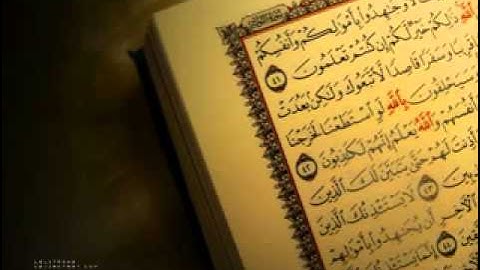 وَجَٰهِدُوا۟ بِأَمْوَٰلِكُمْ وَأَنفُسِكُمْ
ٱللَّهِ ذَٰلِكُمْ خَيْرٌ لَّكُمْ إِن كُنتُمْ تَعْلَمُونَ ٤١
قَرِيبًا وَسَفَرًا قَاصِدًا لَّٱتَّبَعُوكَ وَلَٰكِنۢ بَعُدَتْ
وَسَيَحْلِفُونَ بِٱللَّهِ لَوِ ٱسْتَطَعْنَا لَخَرَجْنَا
أَنفُسَهُمْ وَٱللَّهُ يَعْلَمُ إِنَّهُمْ لَكَٰذِبُونَ ٤٢
أَذِنتَ لَهُمْ حَتَّىٰ يَتَبَيَّنَ لَكَ ٱلَّذِينَ
ذِبِينَ ٤٣ لَا يَسْتَـْٔذِنُكَ ٱلَّذِينَ
ٱلْـَٔاخِرِ أَن يُجَٰهِدُوا۟ بِأَمْوَٰلِهِمْ
قِينَ ٤٤ إِنَّمَا